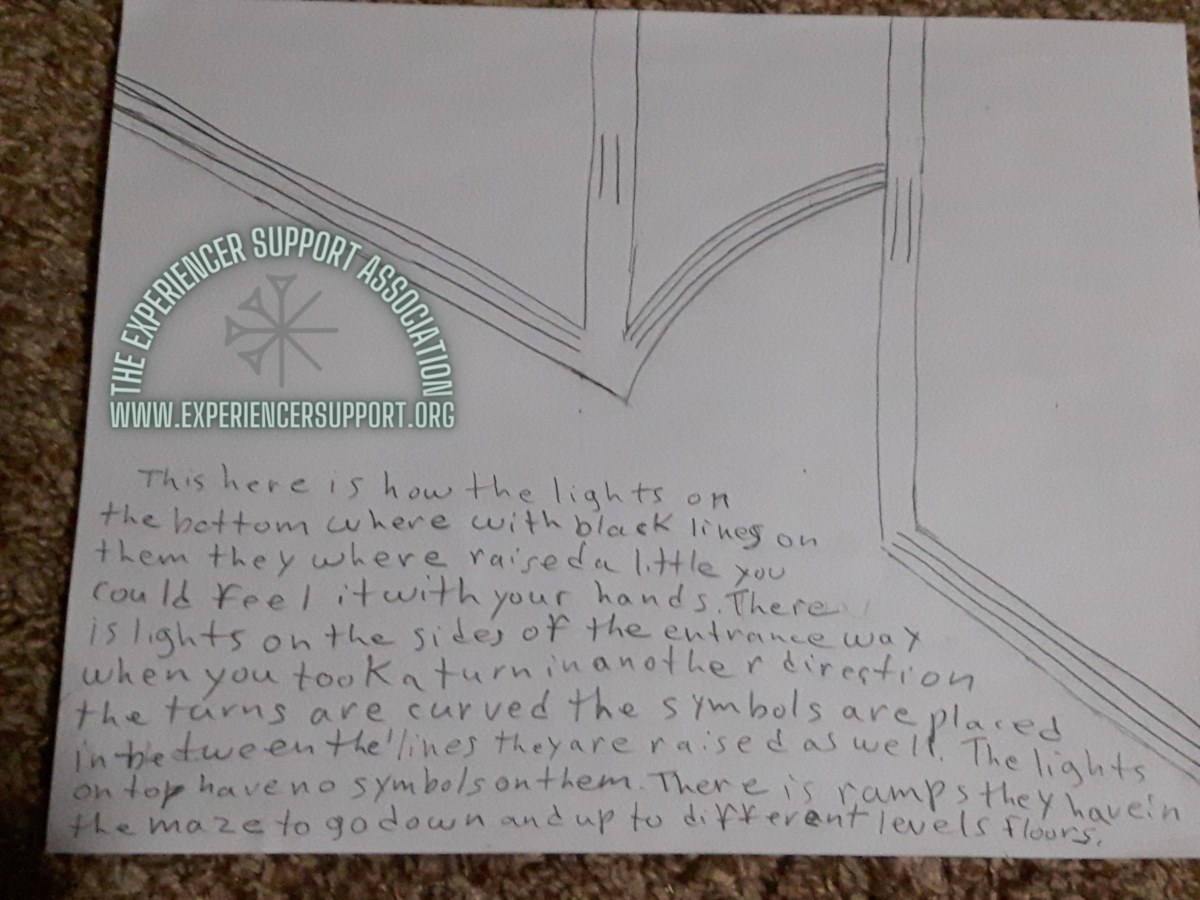 THE EXPERIENCER SUPPORT ASSOCIATION
WWW.EXPERIENCERSUPPORT.ORG
This here is how the lights on
the bottom where with black lines on
them they where raised a little you
could feel it with your hands. There
is lights on the sides of the entrance way
when you took a turn in another direction
the turns are curved the symbols are placed
in between the lines they are raised as well. The lights
on top have no symbols on them. There is ramps they have in
the maze to go down and up to different levels floors.